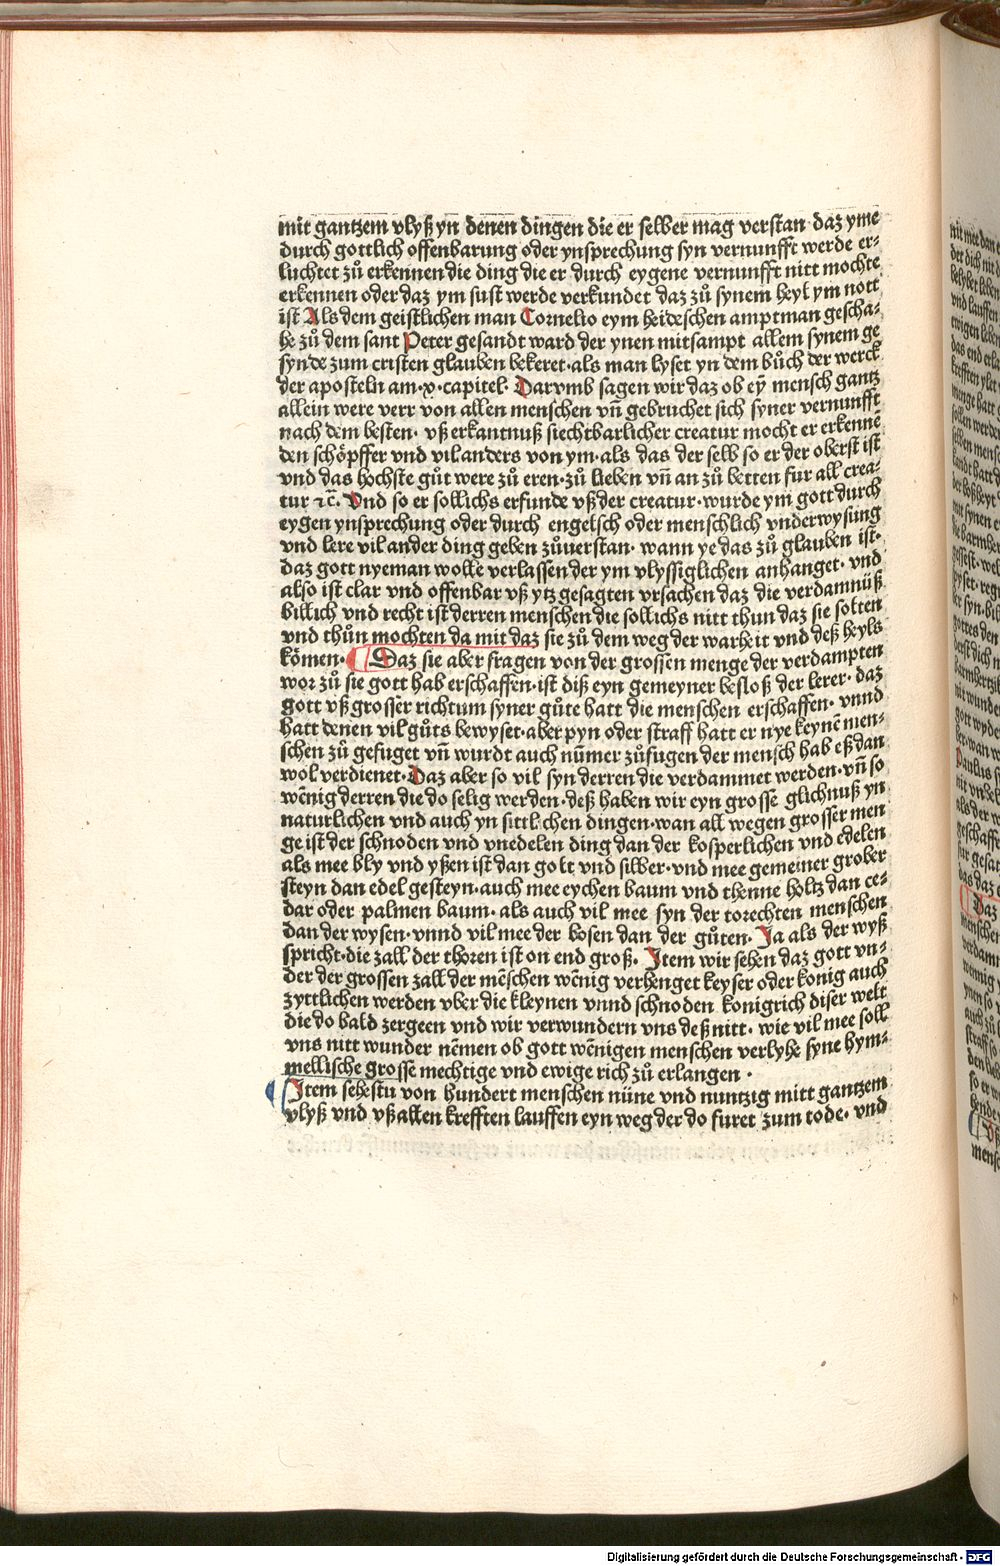 mit gantzem vlyß yn denen dingen die er selber mag verstan daz yme
durch gottlich offenbarung oder ynsprechung syn vernunfft werde er⸗
luchtet zů erkennen die ding die er durch eygene vernunfft nitt mochte
erkennen oder daz ym sust werde verkundet daz zů synem heyl ym nott
ist Als dem geistlichen man Cornelio eym heideschen amptman gescha⸗
he zů dem sant Peter gesandt ward der ynen mitsampt allem synem ge
synde zum cristen glauben bekeret· als man lyset yn dem bůch der werck
der aposteln am·x·capitel· Darvmb sagen wir daz ob eȳ mensch gantz
allein were verr von allen menschen vn̄ gebruchet sich syner vernunfft
nach dem besten· vß erkantnuß siechtbarlicher creatur mocht er erkennē
den schöpffer vnd vil anders von ym·als das der selb so er der oberst ist
vnd das hochste gůt were zů eren·zů lieben vn̄ an zů betten fur all crea⸗
tur ⁊c̄. Vnd so er sollichs erfunde vß der creatur·wurde ym gott durch
eygen ynsprechung oder durch engelsch oder menschlich vnderwysung
vnd lere vil ander ding geben zůuerstan· wann ye das zů glauben ist·
daz gott nyeman wolle verlassen der ym vlyssiglichen anhanget· vnd
also ist clar vnd offenbar vß ytz gesagten vrsachen daz die verdamnüß
billich vnd recht ist derren menschen die sollichs nitt thun daz sie solten
vnd thůn mochten da mit daz sie zů dem weg der warheit vnd deß heyls
kömen· Daz sie aber fragen von der grossen menge der verdampten
wor zů sie gott hab erschaffen·ist diß eyn gemeyner besloß der lerer· daz
gott vß grosser richtum syner gůte hatt die menschen erschaffen· vnnd
hatt denen vil gůts bewyset·aber pyn oder straff hatt er nye keynē men⸗
schen zů gefuget vn̄ wurdt auch nūmer zůfugen der mensch hab eß dan
wol verdienet·Daz aber so vil syn derren die verdammet werden·vn̄ so
wēnig derren die do selig werden·deß haben wir eyn grosse glichnuß yn
naturlichen vnd auch yn sittlichen dingen·wan all wegen grosser men
ge ist der schnoden vnd vnedelen ding dan der kosperlichen vnd edelen
als mee bly vnd yßen ist dan golt vnd silber·vnd mee gemeiner grober
steyn dan edel gesteyn·auch mee eychen baum vnd thenne holtz dan ce⸗
dar oder palmen baum· als auch vil mee syn der torechten menschen
dan der wysen·vnnd vil mee der bosen dan der gůten· Ja als der wyß
spricht·die zall der thoren ist on end groß· Item wir sehen daz gott vn⸗
der der grossen zall der mēschen wēnig verhenget keyser oder konig auch
zyttlichen werden vber die kleynen vnnd schnoden konigrich diser welt
die do bald zergeen vnd wir verwundern vns deß nitt· wie vil mee soll
vns nitt wunder nēmen ob gott wēnigen menschen verlyhe syne hym⸗
mellische grosse mechtige vnd ewige rich zů erlangen ·
Item sehestu von hundert menschen nüne vnd nuntzig mitt gantzem
vlyß vnd vß allen krefften lauffen eyn weg der do furet zum tode· vnd
Digitalisierung gefördert durch die Deutsche Forschungsgemeinschaft - DFG